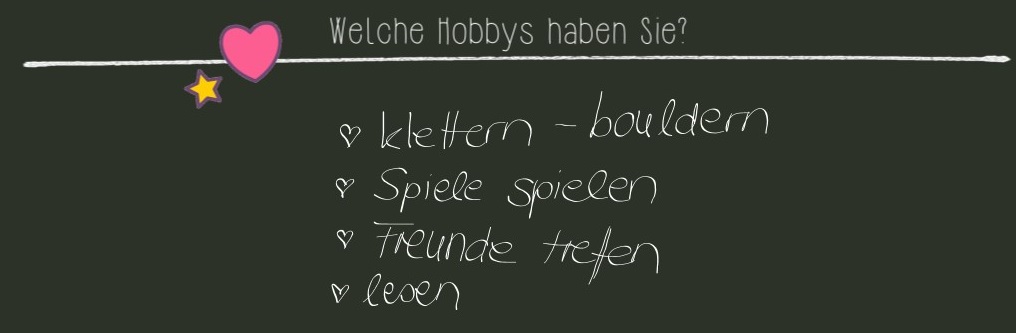 Welche Hobbys haben Sie?
♡ klettern – bouldern
♡ Spiele spielen
♡ Freunde treffen
♡ lesen